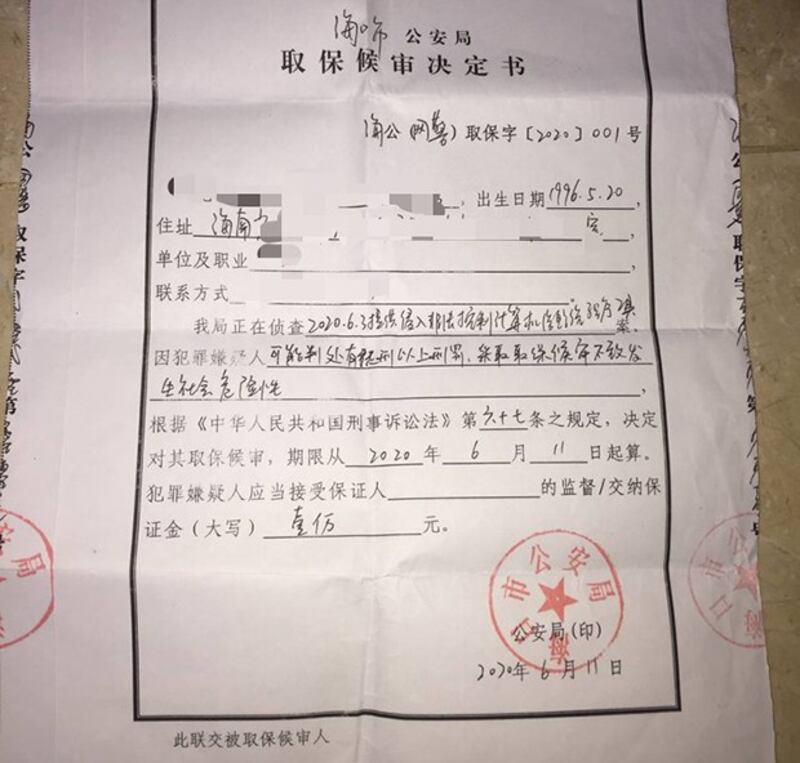 海口市 公安局
取保候审决定书
海公(网警)取保字[2020]001号
出生日期1996.5.20,
住址 海南
单位及职业
联系方式
我局正在侦查2020.6.3提供侵入非法控制计算机信息系统程序工具案,
因犯罪嫌疑人可能判处有期徒刑以上刑罚,采取取保候审不致发
生社会危险性,
根据《中华人民共和国刑事诉讼法》第六十七条之规定,决定
对其取保候审,期限从2020年6月11日起算。
犯罪嫌疑人应当接受保证人 的监督/交纳保
证金(大写)壹佰元。
海口市公安局
公安局(印)
2020年6月11日
此联交被取保候审人